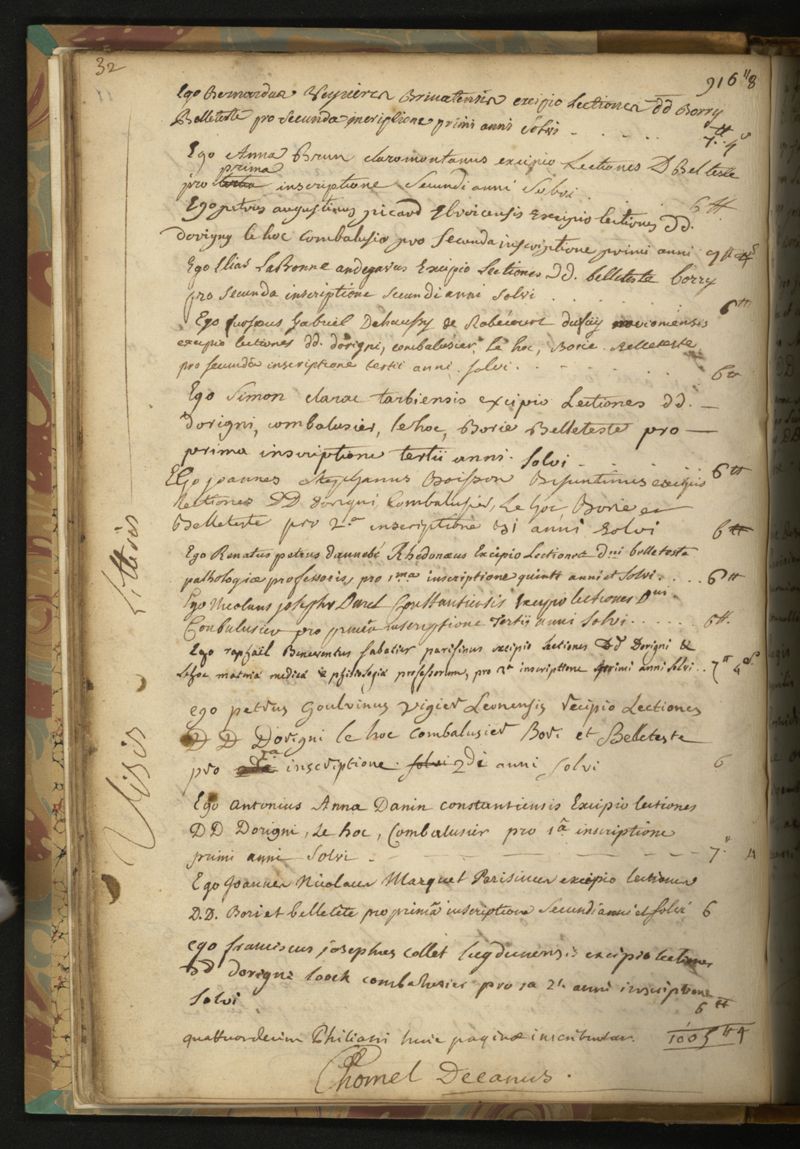 32
916 ₶ 8
Ego Bernardus Veysieres Brivatensis excipio Lectiones dd Borry
Belleteste pro secunda inscriptione primi anni solvi . . . . . 7 ₶ 4 s
Ego Anna Brun claromontanus excipio Lectiones D Belleteste
prima
pro tertia inscriptione secundi anni Solvi . . . 6 ₶
Ego petrus augustinus picard Ebroicensis Excipio lectiones dd.
dorigny le hoc Combalusier pro secunda inscriptione primi anni 7 ₶ 4 s
Ego Elias LaBonne andegavus Excipio Lectiones dd. belleteste borry
pro secunda inscriptione secundi anni solvi . . . . . . 6 ₶
Ego Gabriel Dehaussy de Robecourt noviomensis
excipio lectiones dd. dorigni, combalusier, le hoc, Borie Belleteste
pro secunda inscriptione tertii anni . solvi . . . . . . 6 ₶
Ego Simon clarac tarbiensis excipio Lectiones dd. —
dorigni, combalusier, lehoc, Borie Belleteste pro —
prima inscriptione tertii anni. Solvi . . . . . 6 ₶
Ego joannes Stephanus Boisson Bisuntinus excipio
lectiones DD Dorigni Combalusier, Le hoc, Borie et
Belleteste pro 2a inscriptione 3i anni Solvi 6 ₶
Ego Renatus petrus Rhedonæus Excipio Lectiones Dni belleteste
pathologiæ professoris, pro 1ma inscriptione quinti anni et Solvi. . . . 6 ₶
Ego Nicolaus josephus Constantiensis Excipio lectiones Dni.
Conbalusier pro prima inscriptione tertii anni Solvi . . . . . . 6 ₶.
Ego raphaël Bienvenutus sabatier parisinus excipio lectiones Dd Dorigni &
Lehoc materiæ medicæ & philologiæ professorum, pro 2a inscriptione primi anni solvi . . 7 ₶ 4 s
ego petrus Goulvinus vigier Leonensis Excipio Lectiones
D D Dorigni le hoc combalusier Bori et Belleteste
pro 1a inscriptione solvi 2di anni Solvi 6
Ego antonius Anna Danin constantiensis Excipio lectiones
DD Dorigni, Le hoc, Combalusier pro 1a inscriptione
primi anni Solvi . — — — — — 7. ₶ 4
Ego Joannes Nicolaus Marquet Parisinus excipio lectiones
D.D. Bori et belletete pro prima inscriptione Secundi anni et Solvi 6
ego franciscus josephus collet lugdunensis excipio lectiones
dd dorigni loock combalusier pro 1a 2i anni inscriptione
Solvi 6 ₶
quattuordecim Philiatri huic paginæ inscribuntur. 1005 ₶ 4
Chomel Decanus.
Visis Litteris